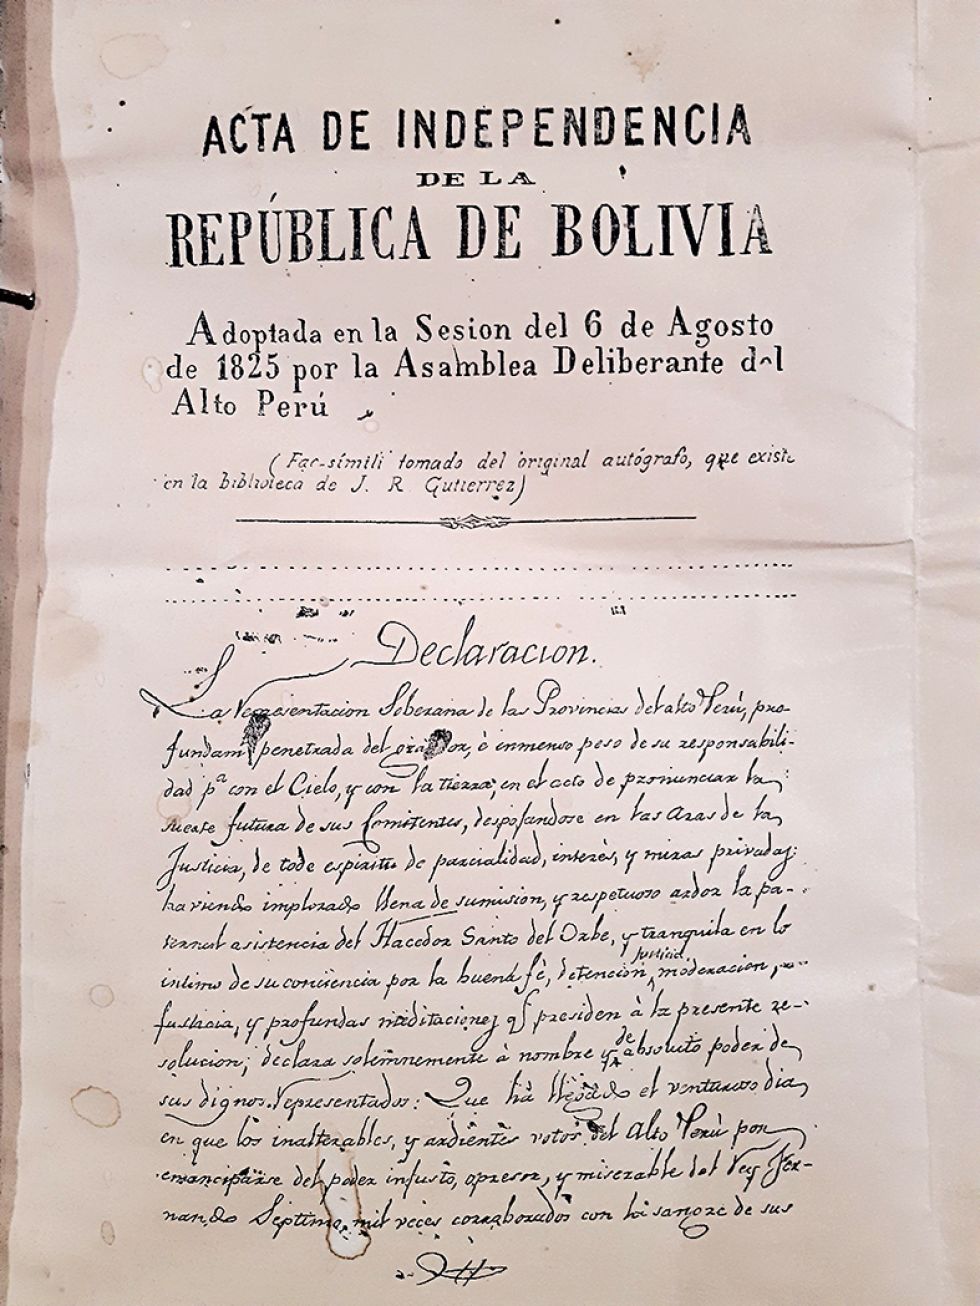 ACTA DE INDEPENDENCIA
DE LA
REPÚBLICA DE BOLIVIA
Adoptada en la Sesion del 6 de Agosto
de 1825 por la Asamblea Deliberante del
Alto Perú
(Fac-símili tomado del original autógrafo, que existe
en la biblioteca de J. R. Gutierrez)
Declaracion.
La Representacion Soberana de las Provincias del alto Perú, pro-
fundam penetrada del grandor, è inmenso peso de su responsabili-
dad pª con el Cielo, y con la tierra, en el acto de pronunciar la
suerte futura de sus Comitentes, despojandose en las aras de la
Justicia, de todo espiritu de parcialidad, interès, y miras privadas:
haviendo implorado llena de sumision, y respetuoso ardor la pa-
ternal asistencia del Hacedor Santo del Orbe, y tranquila en lo
intimo de su conciencia por la buena fè, detencion, justicia moderacion,
justicia, y profundas meditaciones qe presiden à la presente re-
solucion; declara solemnemente à nombre y de absoluto poder de
sus dignos representados: Que há llegado el venturoso dia
en que los inalterables, y ardientes votos del Alto Perú por
emanciparse del poder injusto, opresor, y miserable del rey Fer-
nando Septimo, mil veces corroborados con la sangre de sus